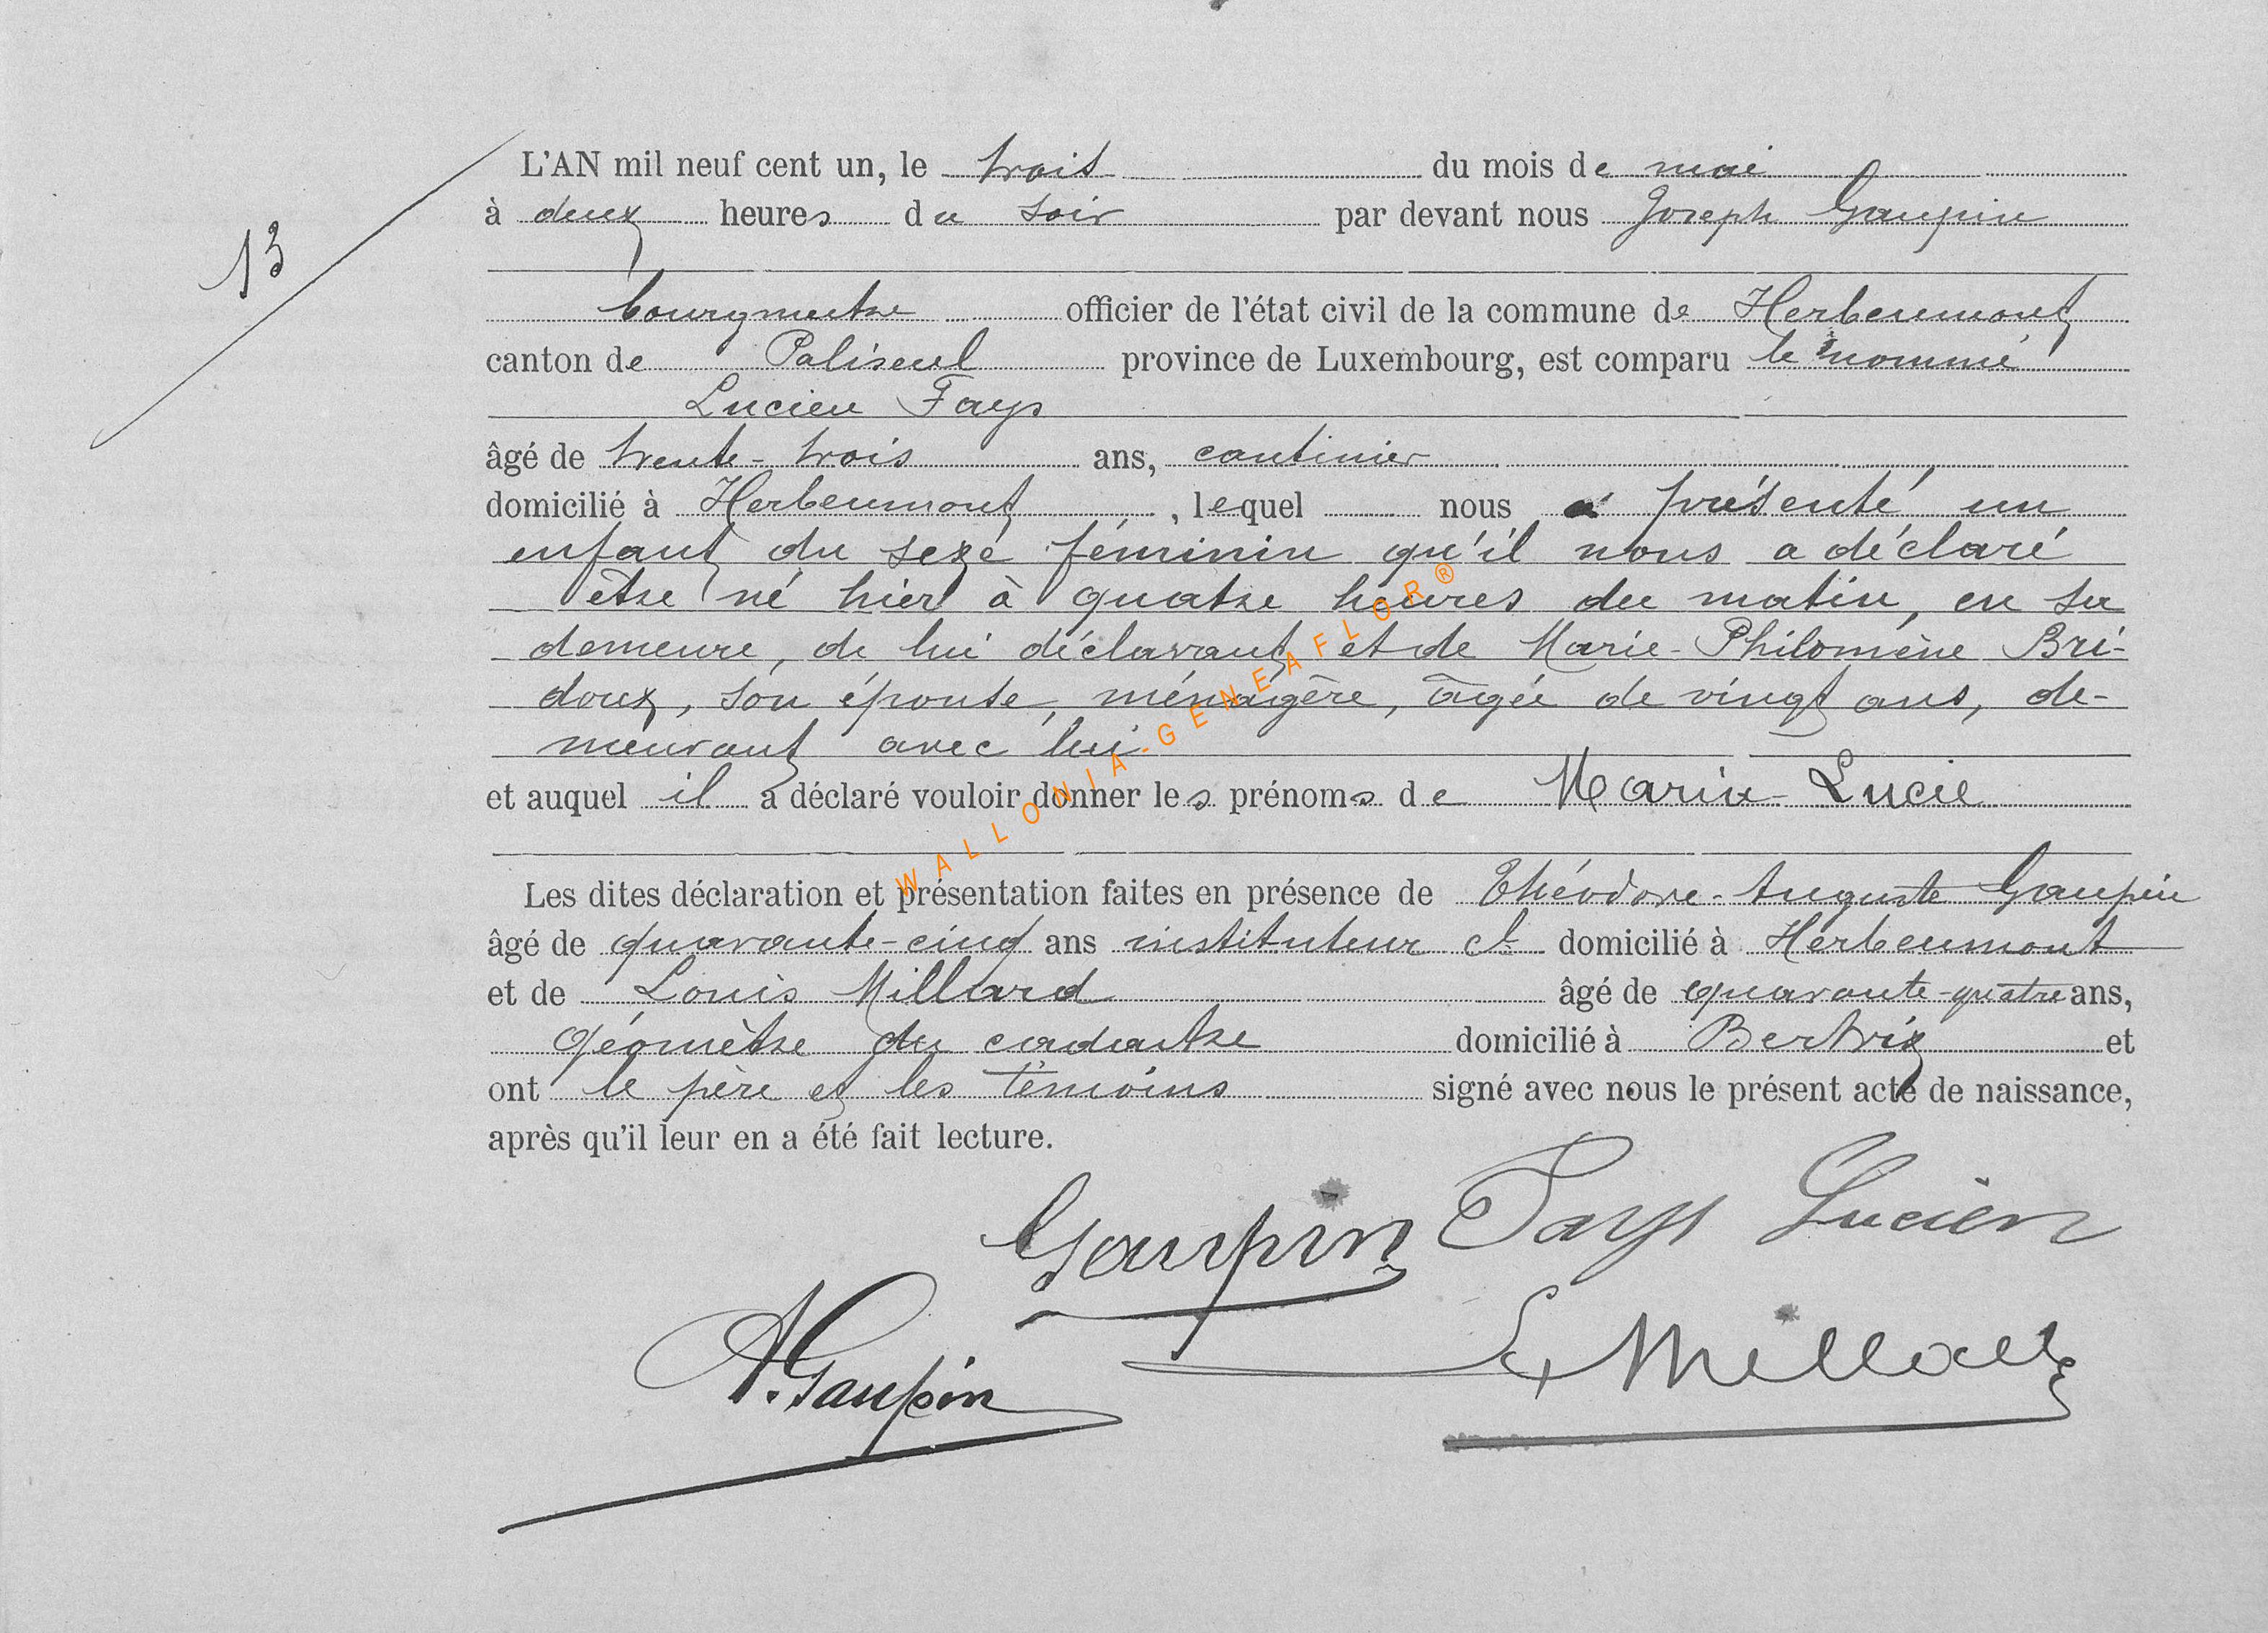 13
L'AN mil neuf cent un, le trois du mois de mai
à deux heures du soir par devant nous Joseph Gaupin
bourgmestre officier de l'état civil de la commune de Herbeumont
canton de Paliseul province de Luxembourg, est comparu le nommé
Lucien Fays
âgé de trente-trois ans, cantinier
domicilié à Herbeumont, lequel nous a présenté un
enfant du sexe féminin qu'il nous a déclaré
être né hier à quatre heures du matin, en sa
demeure, de lui déclarant et de Marie-Philomène Bri-
doux, son épouse, ménagère, âgée de vingt ans, de-
meurant avec lui
et auquel il a déclaré vouloir donner les prénoms de Marie-Lucie
Les dites déclaration et présentation faites en présence de Théodore-Auguste Gaupin
âgé de quarante-cinq ans instituteur et domicilié à Herbeumont
et de Louis Millard âgé de quarante-quatre ans,
géomètre du cadastre domicilié à Bertrix et
ont le père et les témoins signé avec nous le présent acte de naissance,
après qu'il leur en a été fait lecture.
Gaupin Fays Lucien
A. Gaupin L Millard
WALLONIA-GENEAFLOR®